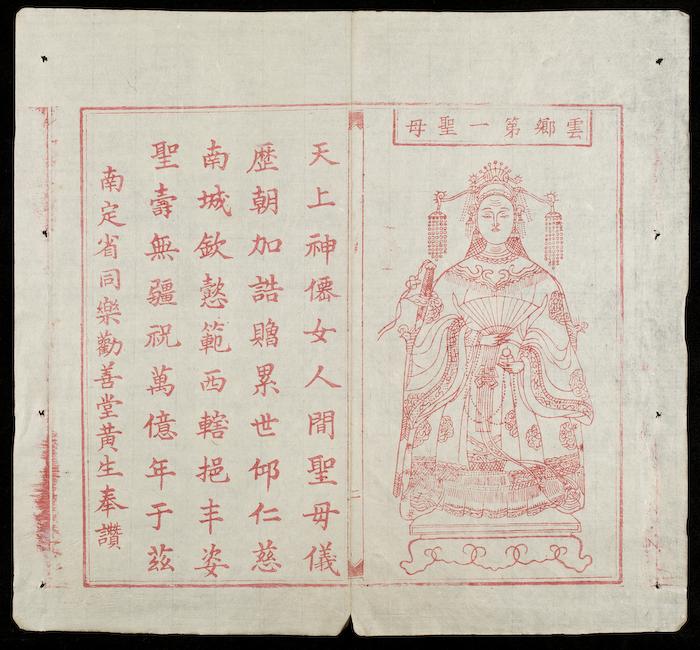 雲鄉第一聖母
二
天上神僊女人間聖母儀
歷朝加誥贈累世仰仁慈
南城欽懿範西轄挹丰姿
聖壽無疆祝萬億年于茲
南定省同樂勸善堂黃生奉讚